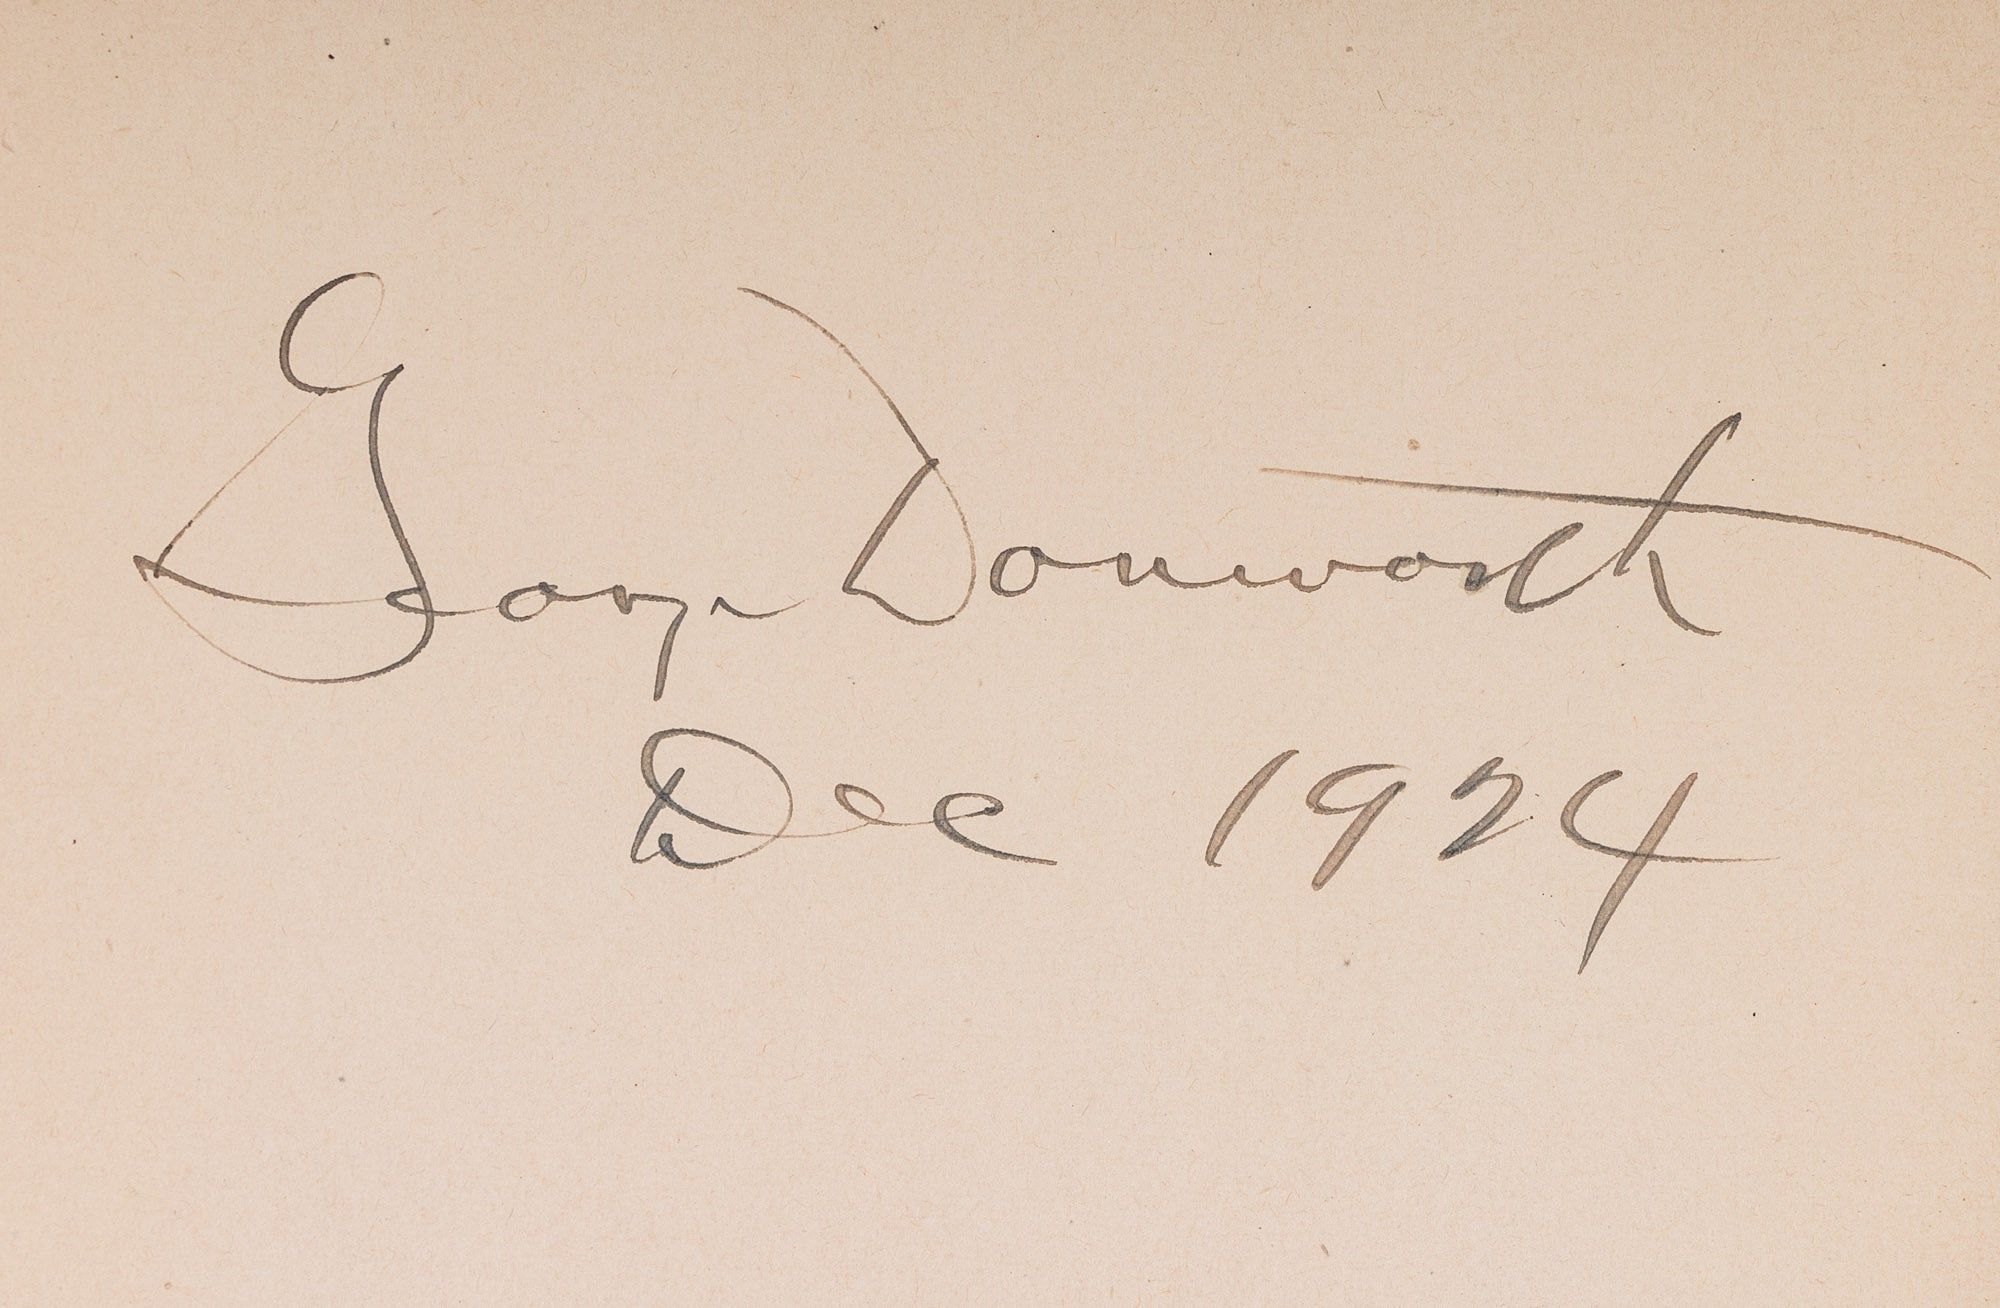 George Donworth
Dec 1924